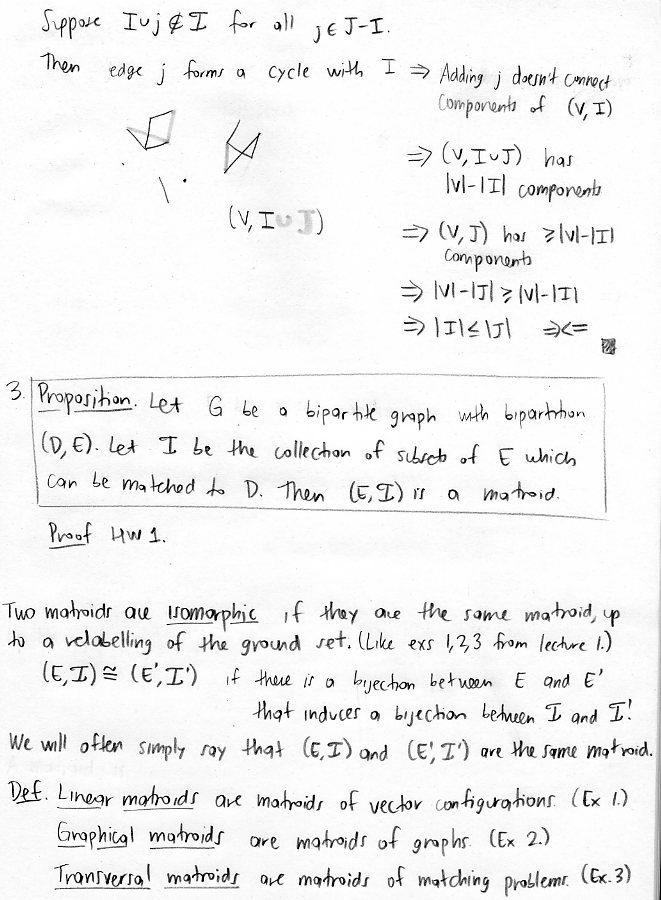 Suppose I∪j ∉ I for all j∈J-I.
Then edge j forms a cycle with I ⇒ Adding j doesn't connect
components of (V, I)
⇒ (V, I∪J) has
|V|-|I| components
(V, I∪J)
⇒ (V, J) has ≥|V|-|I|
components
⇒ |V|-|J| ≥ |V|-|I|
⇒ |I| ≤ |J| ⇒⇐
3. Proposition. Let G be a bipartite graph with bipartition
(D, E). Let I be the collection of subsets of E which
can be matched to D. Then (E, I) is a matroid.
Proof HW 1.
Two matroids are isomorphic if they are the same matroid, up
to a relabelling of the ground set. (Like exs 1,2,3 from lecture 1.)
(E, I) ≅ (E', I') if there is a bijection between E and E'
that induces a bijection between I and I'.
We will often simply say that (E, I) and (E', I') are the same matroid.
Def. Linear matroids are matroids of vector configurations (Ex 1.)
Graphical matroids are matroids of graphs. (Ex 2.)
Transversal matroids are matroids of matching problems. (Ex. 3)